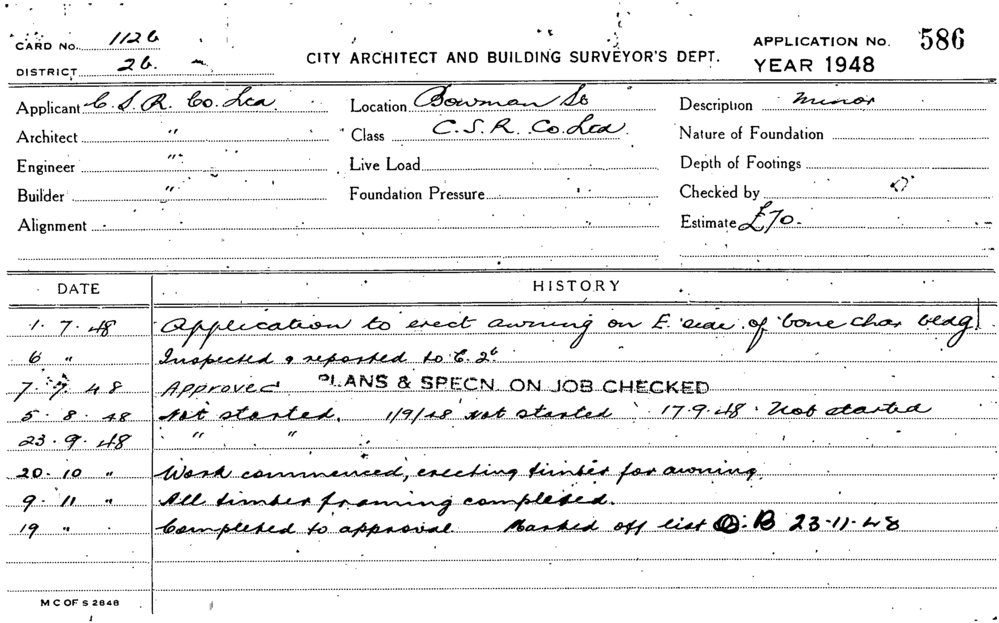 CARD No. 1126
DISTRICT 26.
CITY ARCHITECT AND BUILDING SURVEYOR'S DEPT.
APPLICATION No. 586
YEAR 1948
Applicant C.S.R. Co. Ltd Location Bowman St Description Minor
Architect " Class C.S.R. Co. Ltd. Nature of Foundation
Engineer " Live Load Depth of Footings
Builder " Foundation Pressure Checked by
Alignment Estimate £70.
DATE HISTORY
1. 7. 48 Application to erect awning on E. side of bone char bldg.
6 " Inspected & reported to C.
7. 7. 48 Approved PLANS & SPECN. ON JOB CHECKED
5. 8. 48 Not started. 1/9/48 Not started 17.9.48. Not started
23. 9. 48 " "
20. 10 " Work commenced, erecting timber for awning.
9. 11 " All timber framing completed.
19 " Completed to approval Marked off list B 23.11.48
M C OF S 2848